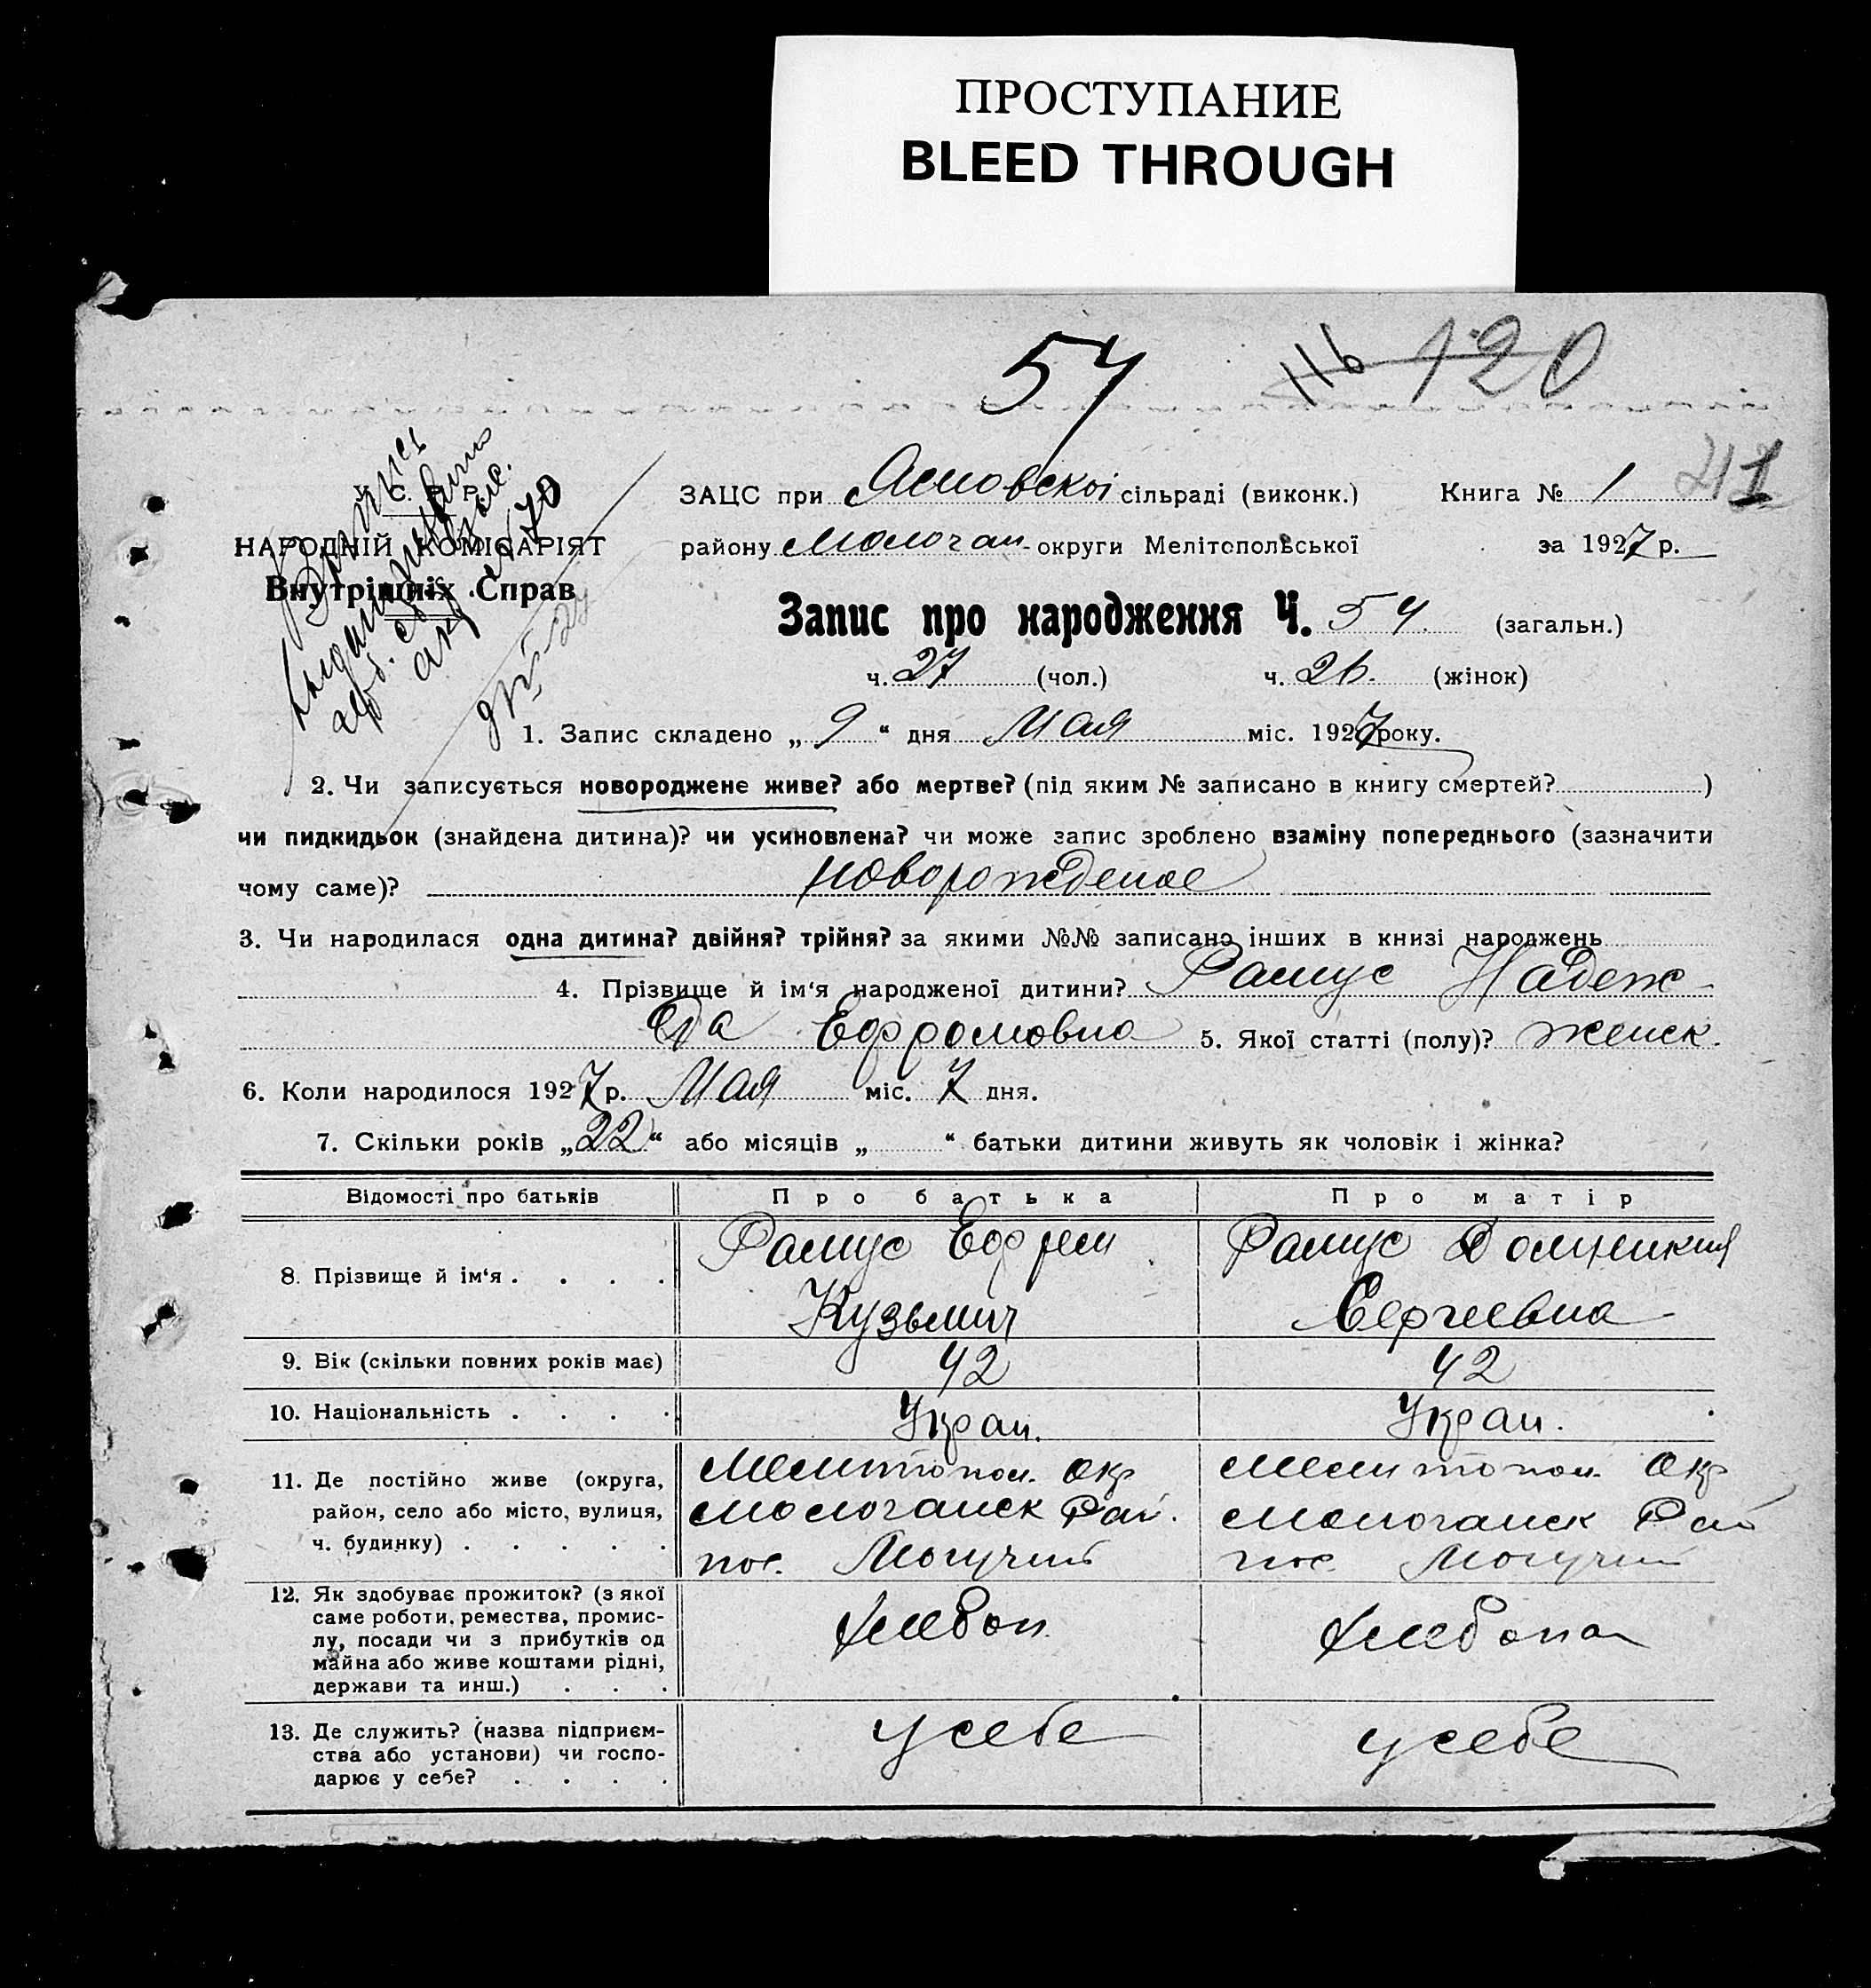 ПРОСТУПАНИЕ
BLEED THROUGH
54
116 120
41
ЗАЦС при Ясновскоі сільраді (виконк.) Книга № 1
С. Р. Р.
НАРОДНІЙ КОМІСАРІЯТ
Внутрішніх Справ
району Молочан- округи Мелітопольської за 1927 р.
Запис про народження Ч. 54 (загальн.)
ч. 27 (чол.) ч. 26. (жінок)
1. Запис складено „ 9 “ дня Мая міс. 1927 року.
2. Чи записується новороджене живе? або мертве? (під яким № записано в книгу смертей? )
чи пидкидьок (знайдена дитина)? чи усиновлена? чи може запис зроблено взаміну попереднього (зазначити
чому саме)? новорожденое
3. Чи народилася одна дитина? двійня? трійня? за якими №№ записано інших в книзі народжень
4. Прізвище й ім‘я народженої дитини? Рамус Надеж-
да Ефромовна 5. Якої статті (полу)? женск.
6. Коли народилося 1927 р. Мая міс. 7 дня.
7. Скільки років „22“ або місяців „ “ батьки дитини живуть як чоловік і жінка?
Відомості про батьків Про батька Про матір
8. Прізвище й ім‘я . . . . Рамус Ефрем Рамус Домникия
Кузьмич Сергеевна
9. Вік (скільки повних років має) 42 42
10. Національність . . . . Украи. Украи.
11. Де постійно живе (округа, Мелитопол. Окр Мелитопол. Окр
район, село або місто, вулиця, Молочанск Рай. Молочанск Рай
ч. будинку) . . . . . пос. Могучий пос. Могучий
12. Як здобуває прожиток? (з якої
саме роботи, ремества, промис- Хлебоп. Хлебопа
лу, посади чи з прибутків од
майна або живе коштами рідні,
держави та инш.) . . .
13. Де служить? (назва підприєм- у себе у себе
ства або установи) чи госпо-
дарює у себе? . . . .